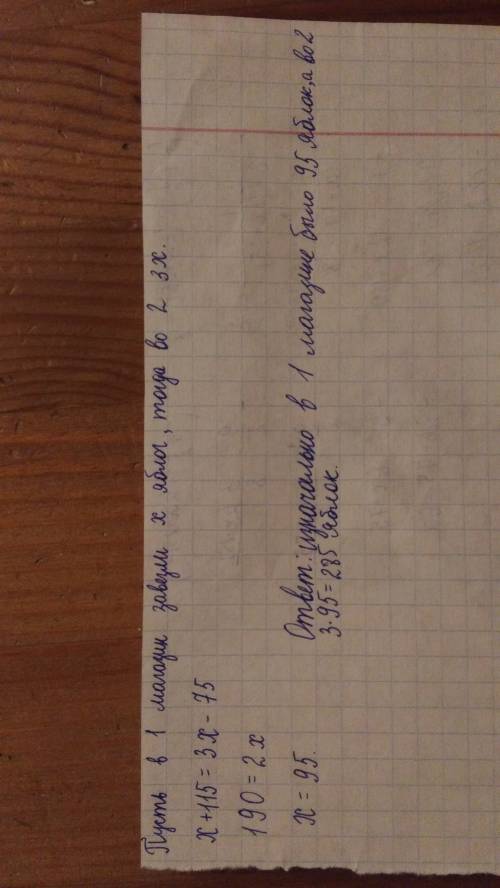 Пусть в 1 магазин завезли х яблог, тогда во 2 3х.
х+115=3х-75
190=2х
х=95.
Ответ: изначально в 1 магазине было 95 яблок, а во 2
3·95=285 яблок.